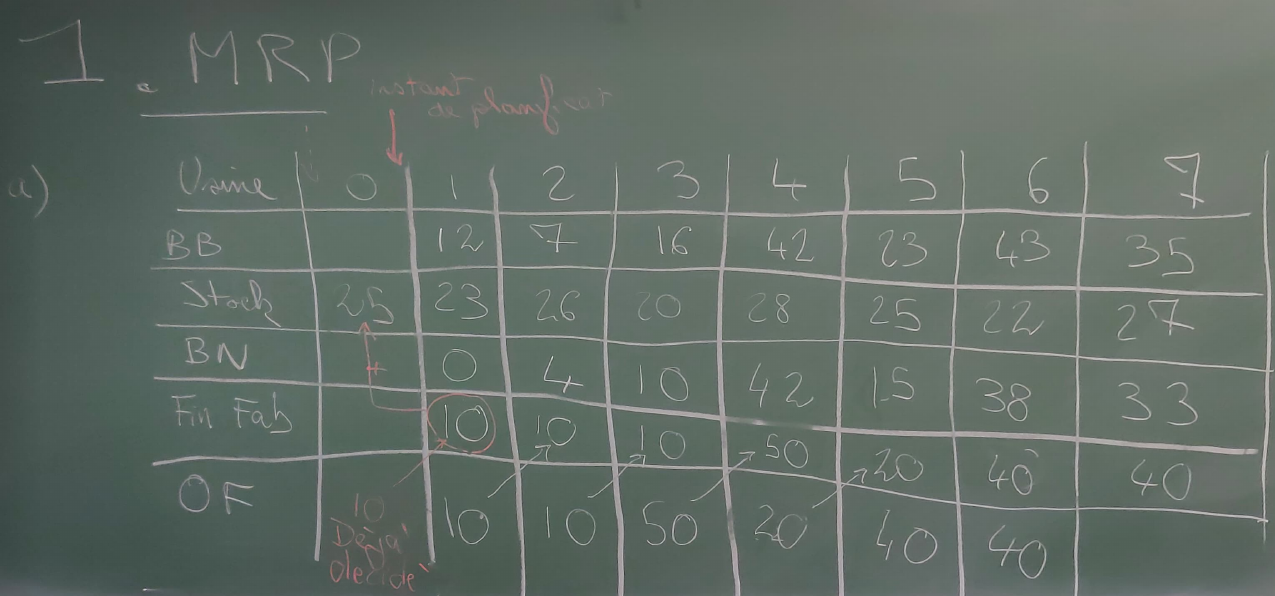 1. MRP
instant
de planificat
a)
Usine 0 1 2 3 4 5 6 7
BB 12 7 16 42 23 43 35
Stock 25 23 26 20 28 25 22 27
BN 0 4 10 42 15 38 33
+
Fin Fab 10 10 10 50 20 40 40
OF 10 10 50 20 40 40
10
Déjà
décidé